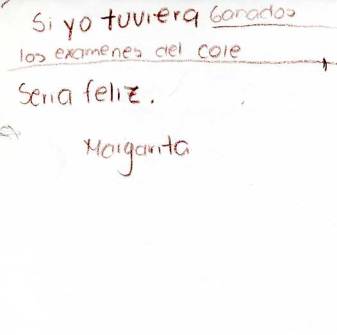 Si yo tuviera Ganados
los examenes del cole
Seria feliz.
Margarita